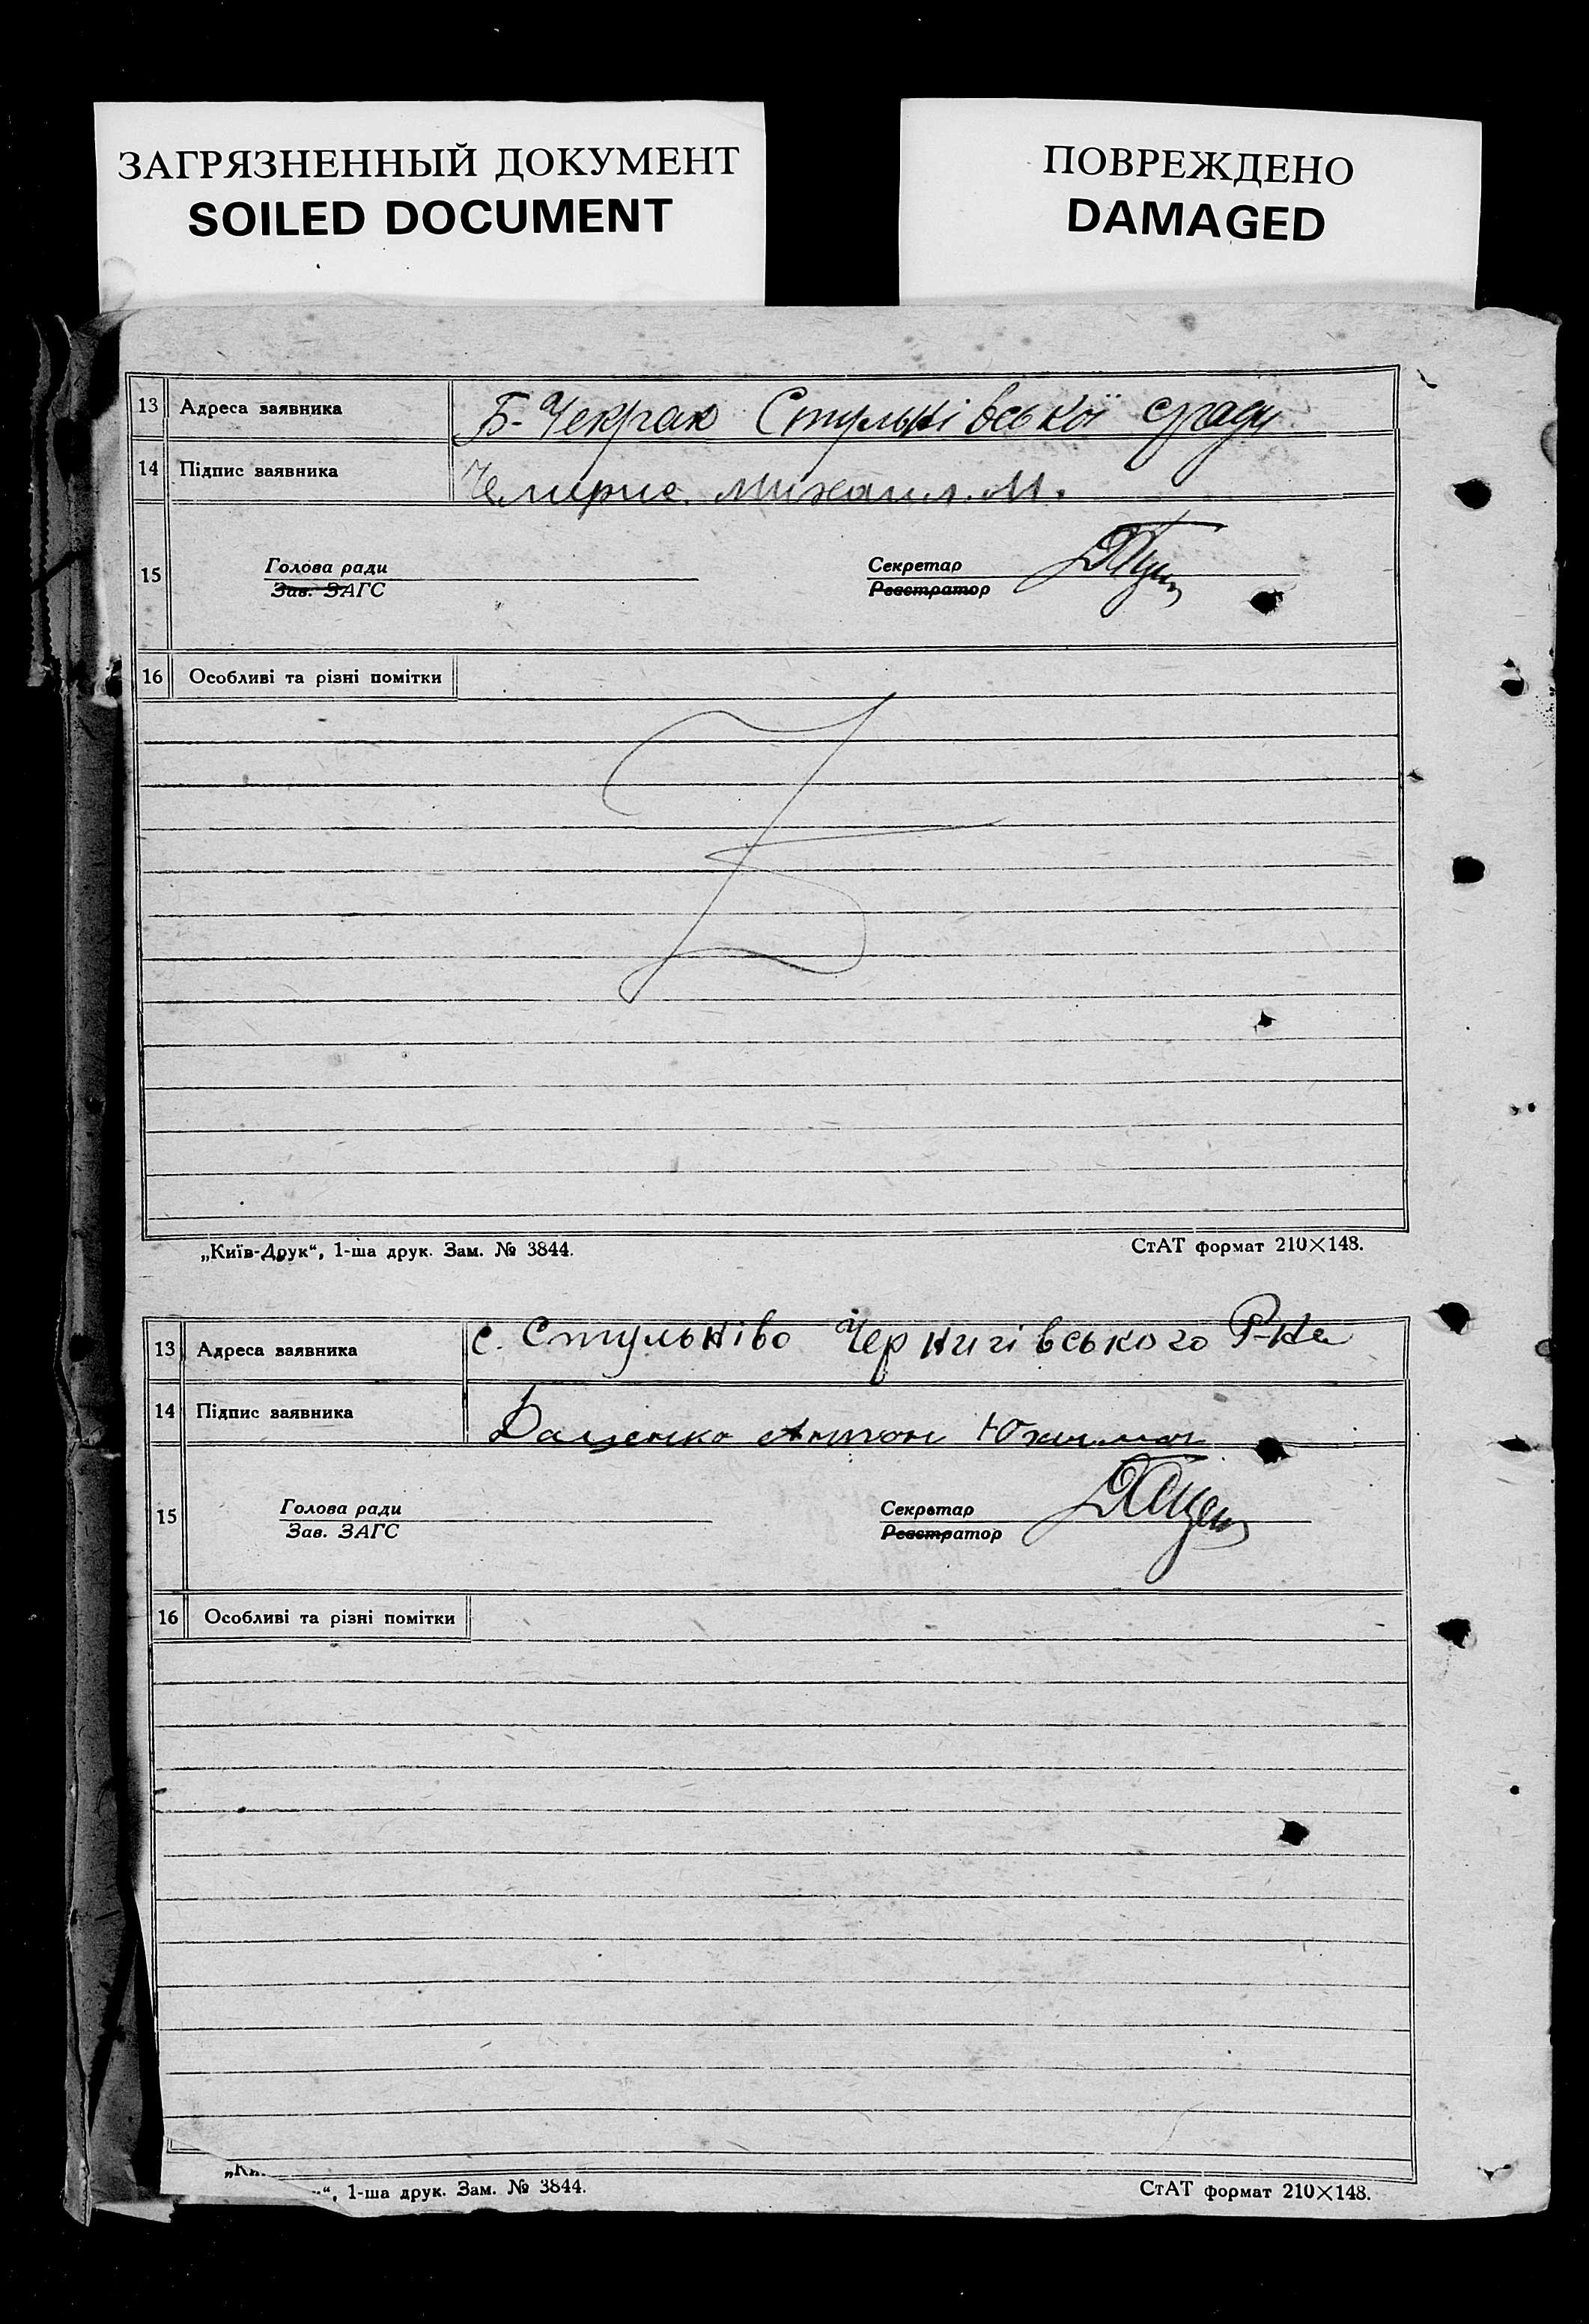 ЗАГРЯЗНЕННЫЙ ДОКУМЕНТ
SOILED DOCUMENT
ПОВРЕЖДЕНО
DAMAGED
13 Адреса заявника Б-Чекрак Стульнівської с/ради
14 Підпис заявника Михаил. М.
15 Голова ради Секретар
Зав. ЗАГС Реєстратор
16 Особливі та різні помітки
„Київ-Друк“, 1-ша друк. Зам. № 3844. СтАТ формат 210×148.
13 Адреса заявника с. Стульніво Чернигівського Р-на
14 Підпис заявника Антон
15 Голова ради Секретар
Зав. ЗАГС Реєстратор
16 Особливі та різні помітки
“, 1-ша друк. Зам. № 3844. СтАТ формат 210×148.